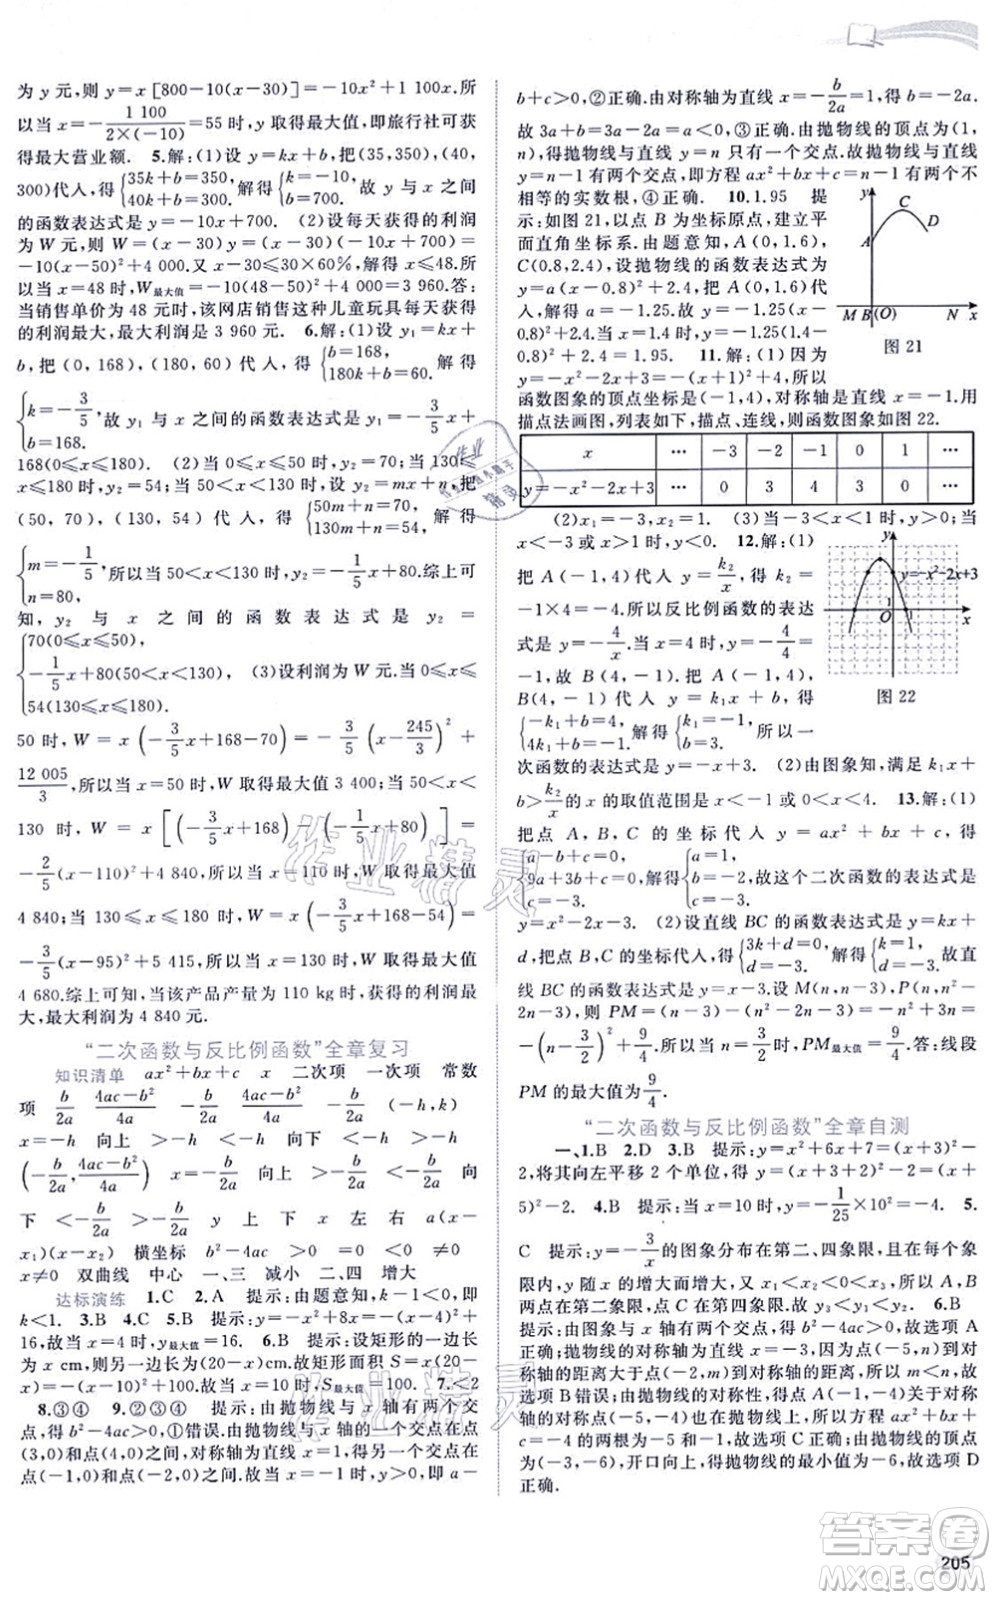 为 y 元,则 y=x[800-10(x-30)]=-10x²+1 100x.所
以当 x=-1 100/(2×(-10))=55 时,y 取得最大值,即旅行社可获
得最大营业额. 5.解:(1)设 y=kx+b,把(35,350),(40,
300)代入,得{35k+b=350, 40k+b=300.解得{k=-10, b=700.故 y 与 x 之间
的函数表达式是 y=-10x+700. (2)设每天获得的利润
为 W 元,则 W=(x-30)y=(x-30)(-10x+700)=
-10(x-50)²+4 000.又 x-30≤30×60%,解得 x≤48.所
以当 x=48 时,W最大值=-10(48-50)²+4 000=3 960.答:
当销售单价为 48 元时,该网店销售这种儿童玩具每天获得
的利润最大,最大利润是 3 960 元. 6.解:(1)设 y₁=kx+
b,把(0,168),(180,60)代入,得{b=168, 180k+b=60.解得
{k=-3/5, b=168.故 y₁ 与 x 之间的函数表达式是 y₁=-3/5x+
168(0≤x≤180). (2)当 0≤x≤50 时,y₂=70;当 130≤
x≤180 时,y₂=54;当 50<x<130 时,设 y₂=mx+n,把
(50,70),(130,54)代入,得{50m+n=70, 130m+n=54.解得
{m=-1/5, n=80.所以当 50<x<130 时,y₂=-1/5x+80.综上可
知,y₂ 与 x 之间的函数表达式是 y₂=
{70(0≤x≤50), -1/5x+80(50<x<130), 54(130≤x≤180). (3)设利润为 W 元,当 0≤x≤
50 时,W=x(-3/5x+168-70)=-3/5(x-245/3)²+
12 005/3,所以当 x=50 时,W 取得最大值 3 400;当 50<x<
130 时,W=x[(-3/5x+168)-(-1/5x+80)]=
-2/5(x-110)²+4 840,所以当 x=110 时,W 取得最大值
4 840;当 130≤x≤180 时,W=x(-3/5x+168-54)=
-3/5(x-95)²+5 415,所以当 x=130 时,W 取得最大值
4 680.综上可知,当该产品产量为 110 kg 时,获得的利润最
大,最大利润为 4 840 元.
“二次函数与反比例函数”全章复习
知识清单 ax²+bx+c x 二次项 一次项 常数
项 b/2a (4ac-b²)/4a -b/2a (4ac-b²)/4a (-h,k)
x=-h 向上 >-h <-h 向下 <-h >-h
(-b/2a,(4ac-b²)/4a) x=-b/2a 向上 >-b/2a <-b/2a 向
下 <-b/2a >-b/2a y x 左 右 a(x-
x₁)(x-x₂) 横坐标 b²-4ac >0 =0 <0
x≠0 双曲线 中心 一、三 减小 二、四 增大
达标演练 1.C 2.A 提示:由题意知,1-k>0,即
k<1. 3.B 4.C 5.B 提示:y=-x²+8x=-(x-4)²+
16,故当 x=4 时,y最大值=16. 6.B 提示:设矩形的一边长
为 x cm,则另一边长为(20-x)cm.故矩形面积 S=x(20-
x)=-(x-10)²+100.故当 x=10 时,S最大值=100. 7.<2
8.③④ 9.②③④ 提示:由抛物线与 x 轴有两个交点,
得 b²-4ac>0,①错误.由抛物线与 x 轴的一个交点在点
(3,0)和点(4,0)之间,对称轴为直线 x=1,得另一个交点在
点(-1,0)和点(-2,0)之间.故当 x=-1 时,y>0,即 a-
b+c>0,②正确.由对称轴为直线 x=-b/2a=1,得 b=-2a.
故 3a+b=3a-2a=a<0,③正确.由抛物线的顶点为(1,
n),得抛物线与直线 y=n 只有一个交点.故抛物线与直线
y=n-1 有两个交点,即方程 ax²+bx+c=n-1 有两个不
相等的实数根,④正确. 10.1.95 提
示:如图 21,以点 B 为坐标原点,建立平
面直角坐标系.由题意知,A(0,1.6),
C(0.8,2.4),设抛物线的函数表达式为
y=a(x-0.8)²+2.4,把 A(0,1.6)
代入,解得 a=-1.25.故 y=-1.25(x-
0.8)²+2.4.当 x=1.4 时,y=-1.25(1.4-
0.8)²+2.4=1.95. 11.解:(1)因为
y=-x²-2x+3=-(x+1)²+4,所以
y
C
D
A
M B (O) N x
图 21
函数图象的顶点坐标是(-1,4),对称轴是直线 x=-1.用
描点法画图,列表如下,描点、连线,则函数图象如图 22.
x … -3 -2 -1 0 1 …
y=-x²-2x+3 … 0 3 4 3 0 …
(2)x₁=-3,x₂=1. (3)当-3<x<1 时,y>0;当
x<-3 或 x>1 时,y<0. 12.解:(1)
把 A(-1,4)代入 y=k₂/x,得 k₂=
-1×4=-4.所以反比例函数的表达
式是 y=-4/x.当 x=4 时,y=-4/4=
-1,故 B(4,-1).把 A(-1,4),
B(4,-1)代入 y=k₁x+b,得
{-k₁+b=4, 4k₁+b=-1.解得{k₁=-1, b=3.所以一
y
y=-x²-2x+3
1
O 1 x
图 22
次函数的表达式是 y=-x+3. (2)由图象知,满足 k₁x+
b>k₂/x 的 x 的取值范围是 x<-1 或 0<x<4. 13.解:(1)
把点 A,B,C 的坐标代入 y=ax²+bx+c,得
{a-b+c=0, 9a+3b+c=0, c=-3.解得{a=1, b=-2, c=-3.故这个二次函数的表达式是
y=x²-2x-3. (2)设直线 BC 的函数表达式是 y=kx+
d,把点 B,C 的坐标代入,得{3k+d=0, d=-3.解得{k=1, d=-3.故直
线 BC 的函数表达式是 y=x-3.设 M(n,n-3),P(n,n²-
2n-3),则 PM=(n-3)-(n²-2n-3)=-n²+3n=
-(n-3/2)²+9/4,所以当 n=3/2 时,PM最大值=9/4.答:线段
PM 的最大值为 9/4.
“二次函数与反比例函数”全章自测
一、1.B 2.D 3.B 提示:y=x²+6x+7=(x+3)²-
2,将其向左平移 2 个单位,得到的抛物线是 y=(x+3+2)²-2=(x+
5)²-2. 4.B 提示:当 x=10 时,y=-1/25×10²=-4. 5.
C 提示:y=-3/x 的图象分布在第二、四象限,且在每个象
限内,y 随 x 的增大而增大,由横坐标的大小关系知,A,B
两点在第二象限,点 C 在第四象限.故 y₃<y₁<y₂. 6.B
提示:由图象知抛物线与 x 轴有两个交点,故 b²-4ac>0,即 b²>4ac,故选项 A
正确;由点(-5,n)到对称轴的距离大于点(-2,m)到对称轴的距离,得 m<n,故
选项 B 错误;由抛物线的对称性,得点(-1,-4)关于对称
轴的对称点(-5,-4)也在抛物线上,故方程 ax²+bx+c=
-4 的两根为-5 和-1,故选项 C 正确;由抛物线的顶点
为(-3,-6),开口向上,得抛物线的最小值为-6,故选项 D
正确.
205
作业精灵
作业精灵
答案圈
MXQE.COM